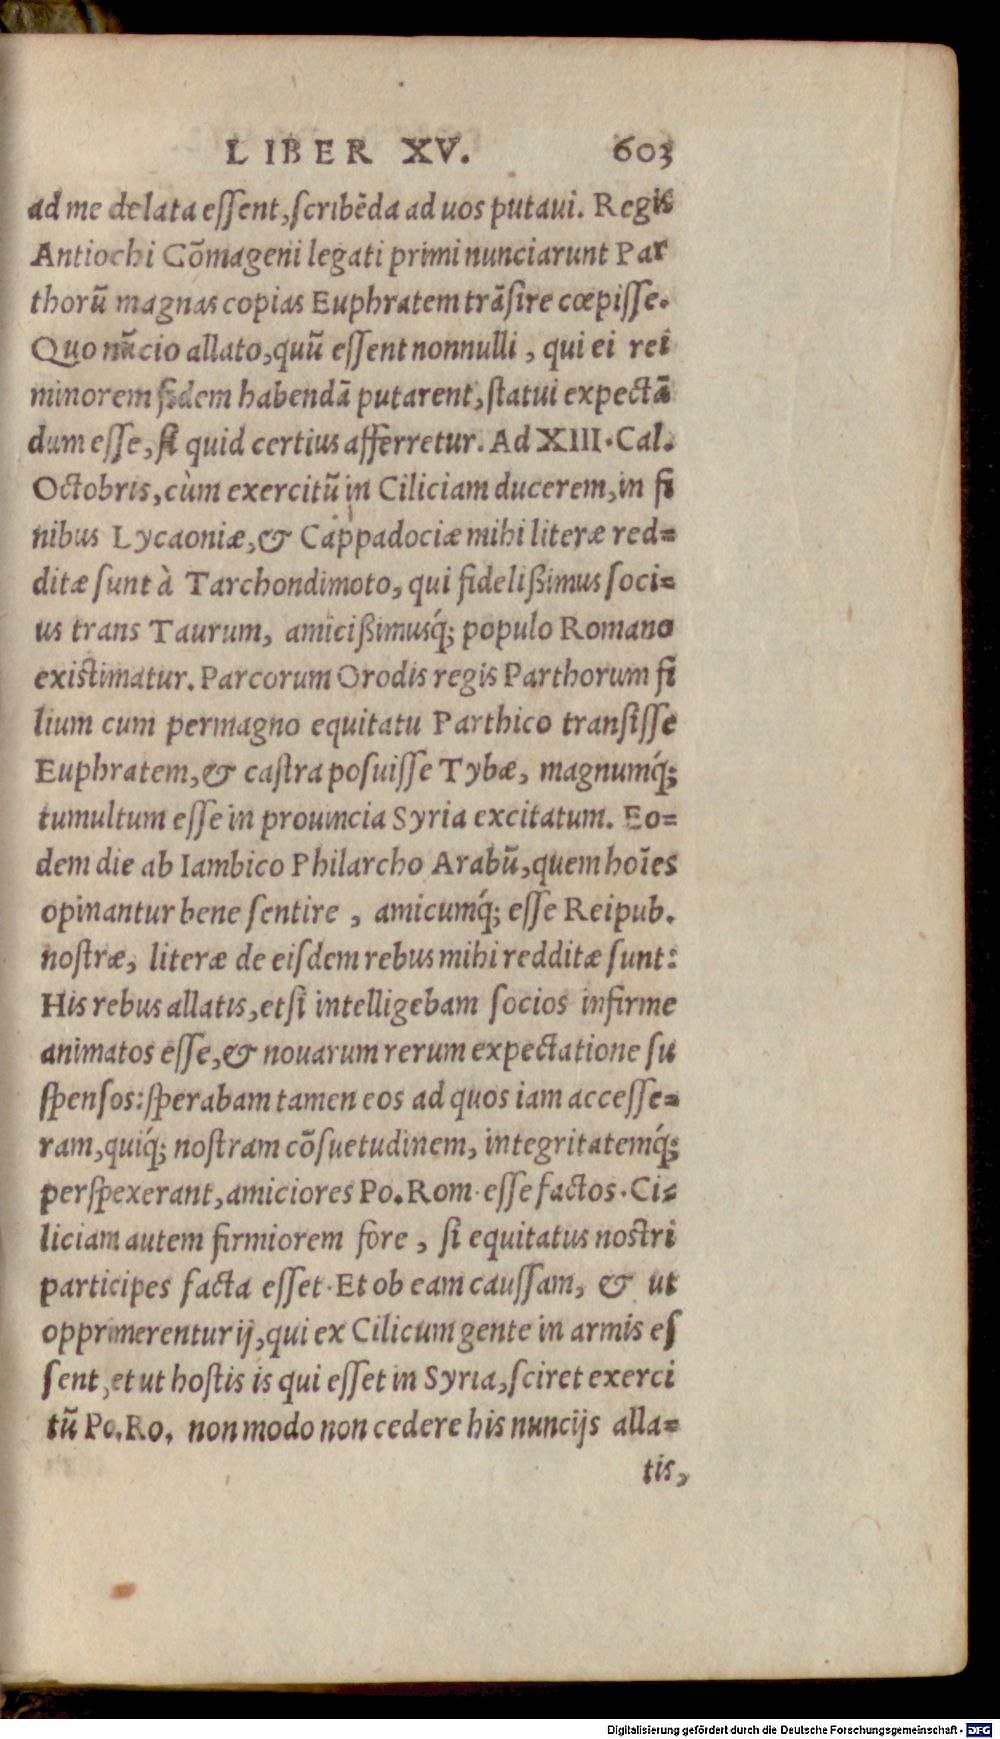 LIBER XV. 603
ad me delata eſſent, ſcribēda ad uos putaui. Regis
Antiochi Cōmageni legati primi nunciarunt Par
thorū magnas copias Euphratem trāſire cœpiſſe.
Quo nūcio allato, quū eſſent nonnulli, qui ei rei
minorem fidem habendā putarent, ſtatui expectā
dum eſſe, ſi quid certius afferretur. Ad XIII. Cal.
Octobris, cùm exercitū in Ciliciam ducerem, in fi
nibus Lycaoniæ, & Cappadociæ mihi literæ red=
ditæ ſunt à Tarchondimoto, qui fideliſſimus ſoci=
us trans Taurum, amiciſſimusq́; populo Romano
exiſtimatur. Parcorum Orodis regis Parthorum fi
lium cum permagno equitatu Parthico tranſiſſe
Euphratem, & caſtra poſuiſſe Tybæ, magnumq́;
tumultum eſſe in prouincia Syria excitatum. Eo=
dem die ab Iambico Philarcho Arabū, quem hoīes
opinantur bene ſentire, amicumq́; eſſe Reipub.
noſtræ, literæ de eiſdem rebus mihi redditæ ſunt:
His rebus allatis, etſi intelligebam ſocios infirme
animatos eſſe, & nouarum rerum expectatione ſu
ſpenſos: ſperabam tamen eos ad quos iam acceſſe=
ram, quiq́; noſtram cōſuetudinem, integritatemq́;
perſpexerant, amiciores Po. Rom. eſſe factos. Ci=
liciam autem firmiorem fore, ſi equitatus noſtri
particìpes facta eſſet. Et ob eam cauſſam, & ut
opprimerentur ij, qui ex Cilicum gente in armis eſ
ſent, et ut hoſtis is qui eſſet in Syria, ſciret exerci
tū Po. Ro. non modo non cedere his nuncijs alla=
tis,
Digitalisierung gefördert durch die Deutsche Forschungsgemeinschaft - DFG